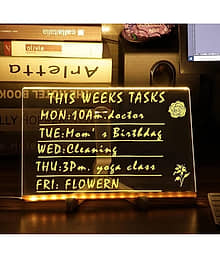 Arletta
THIS WEEKS TASKS
MON:10Am.doctor
TUE:Mom's Birthdag
WED:Cleaning
THU:3Pm. yoga class
FRI: FLOWERN